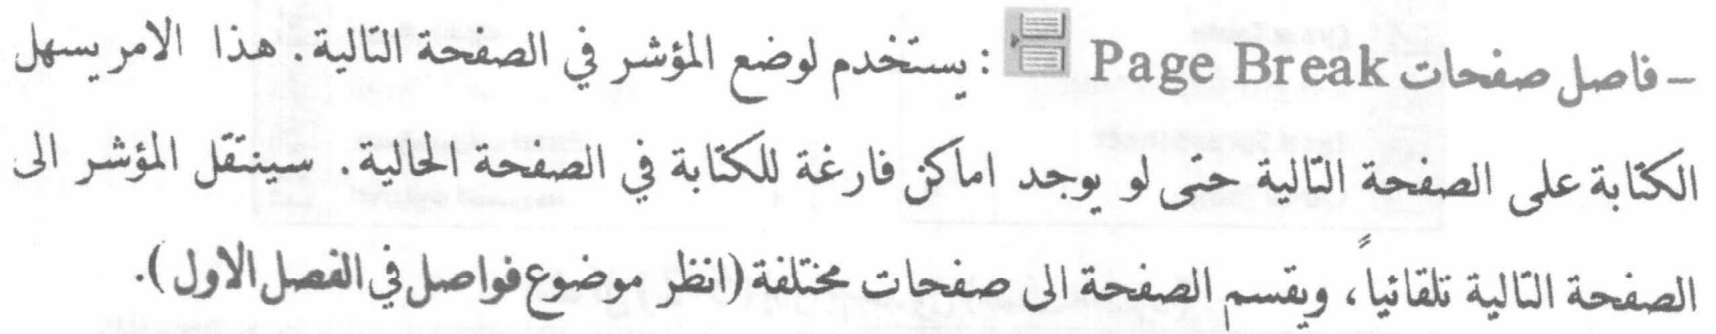 – فاصل صفحات Page Break : يستخدم لوضع المؤشر في الصفحة التالية. هذا الامر يسهل
الكتابة على الصفحة التالية حتى لو يوجد اماكن فارغة للكتابة في الصفحة الحالية. سينتقل المؤشر الى
الصفحة التالية تلقائياً، ويقسم الصفحة الى صفحات مختلفة (انظر موضوع فواصل في الفصل الاول).